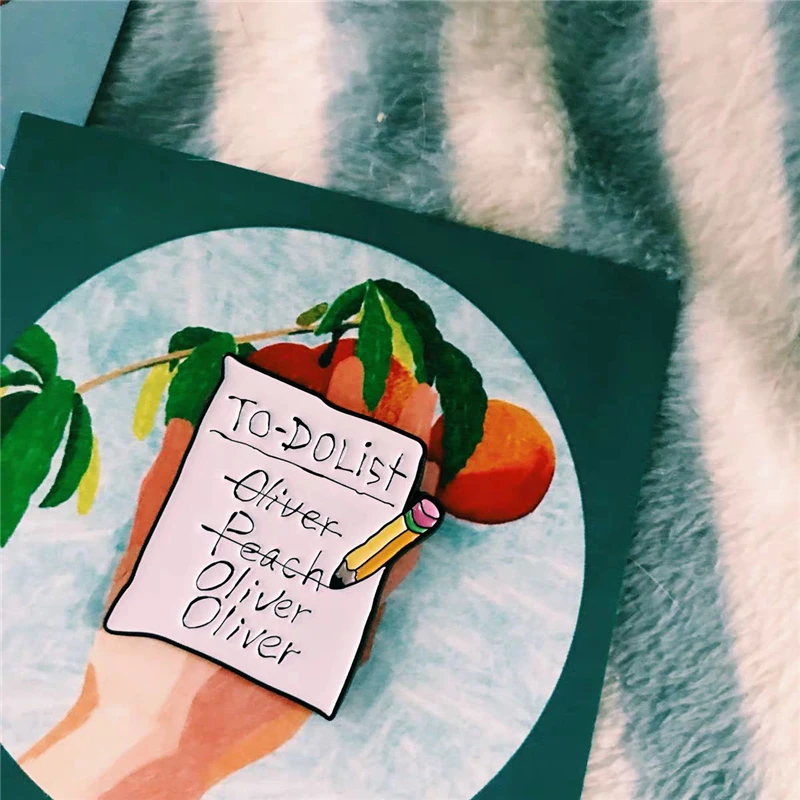 TO-DO List
Oliver
Peach
Oliver
Oliver